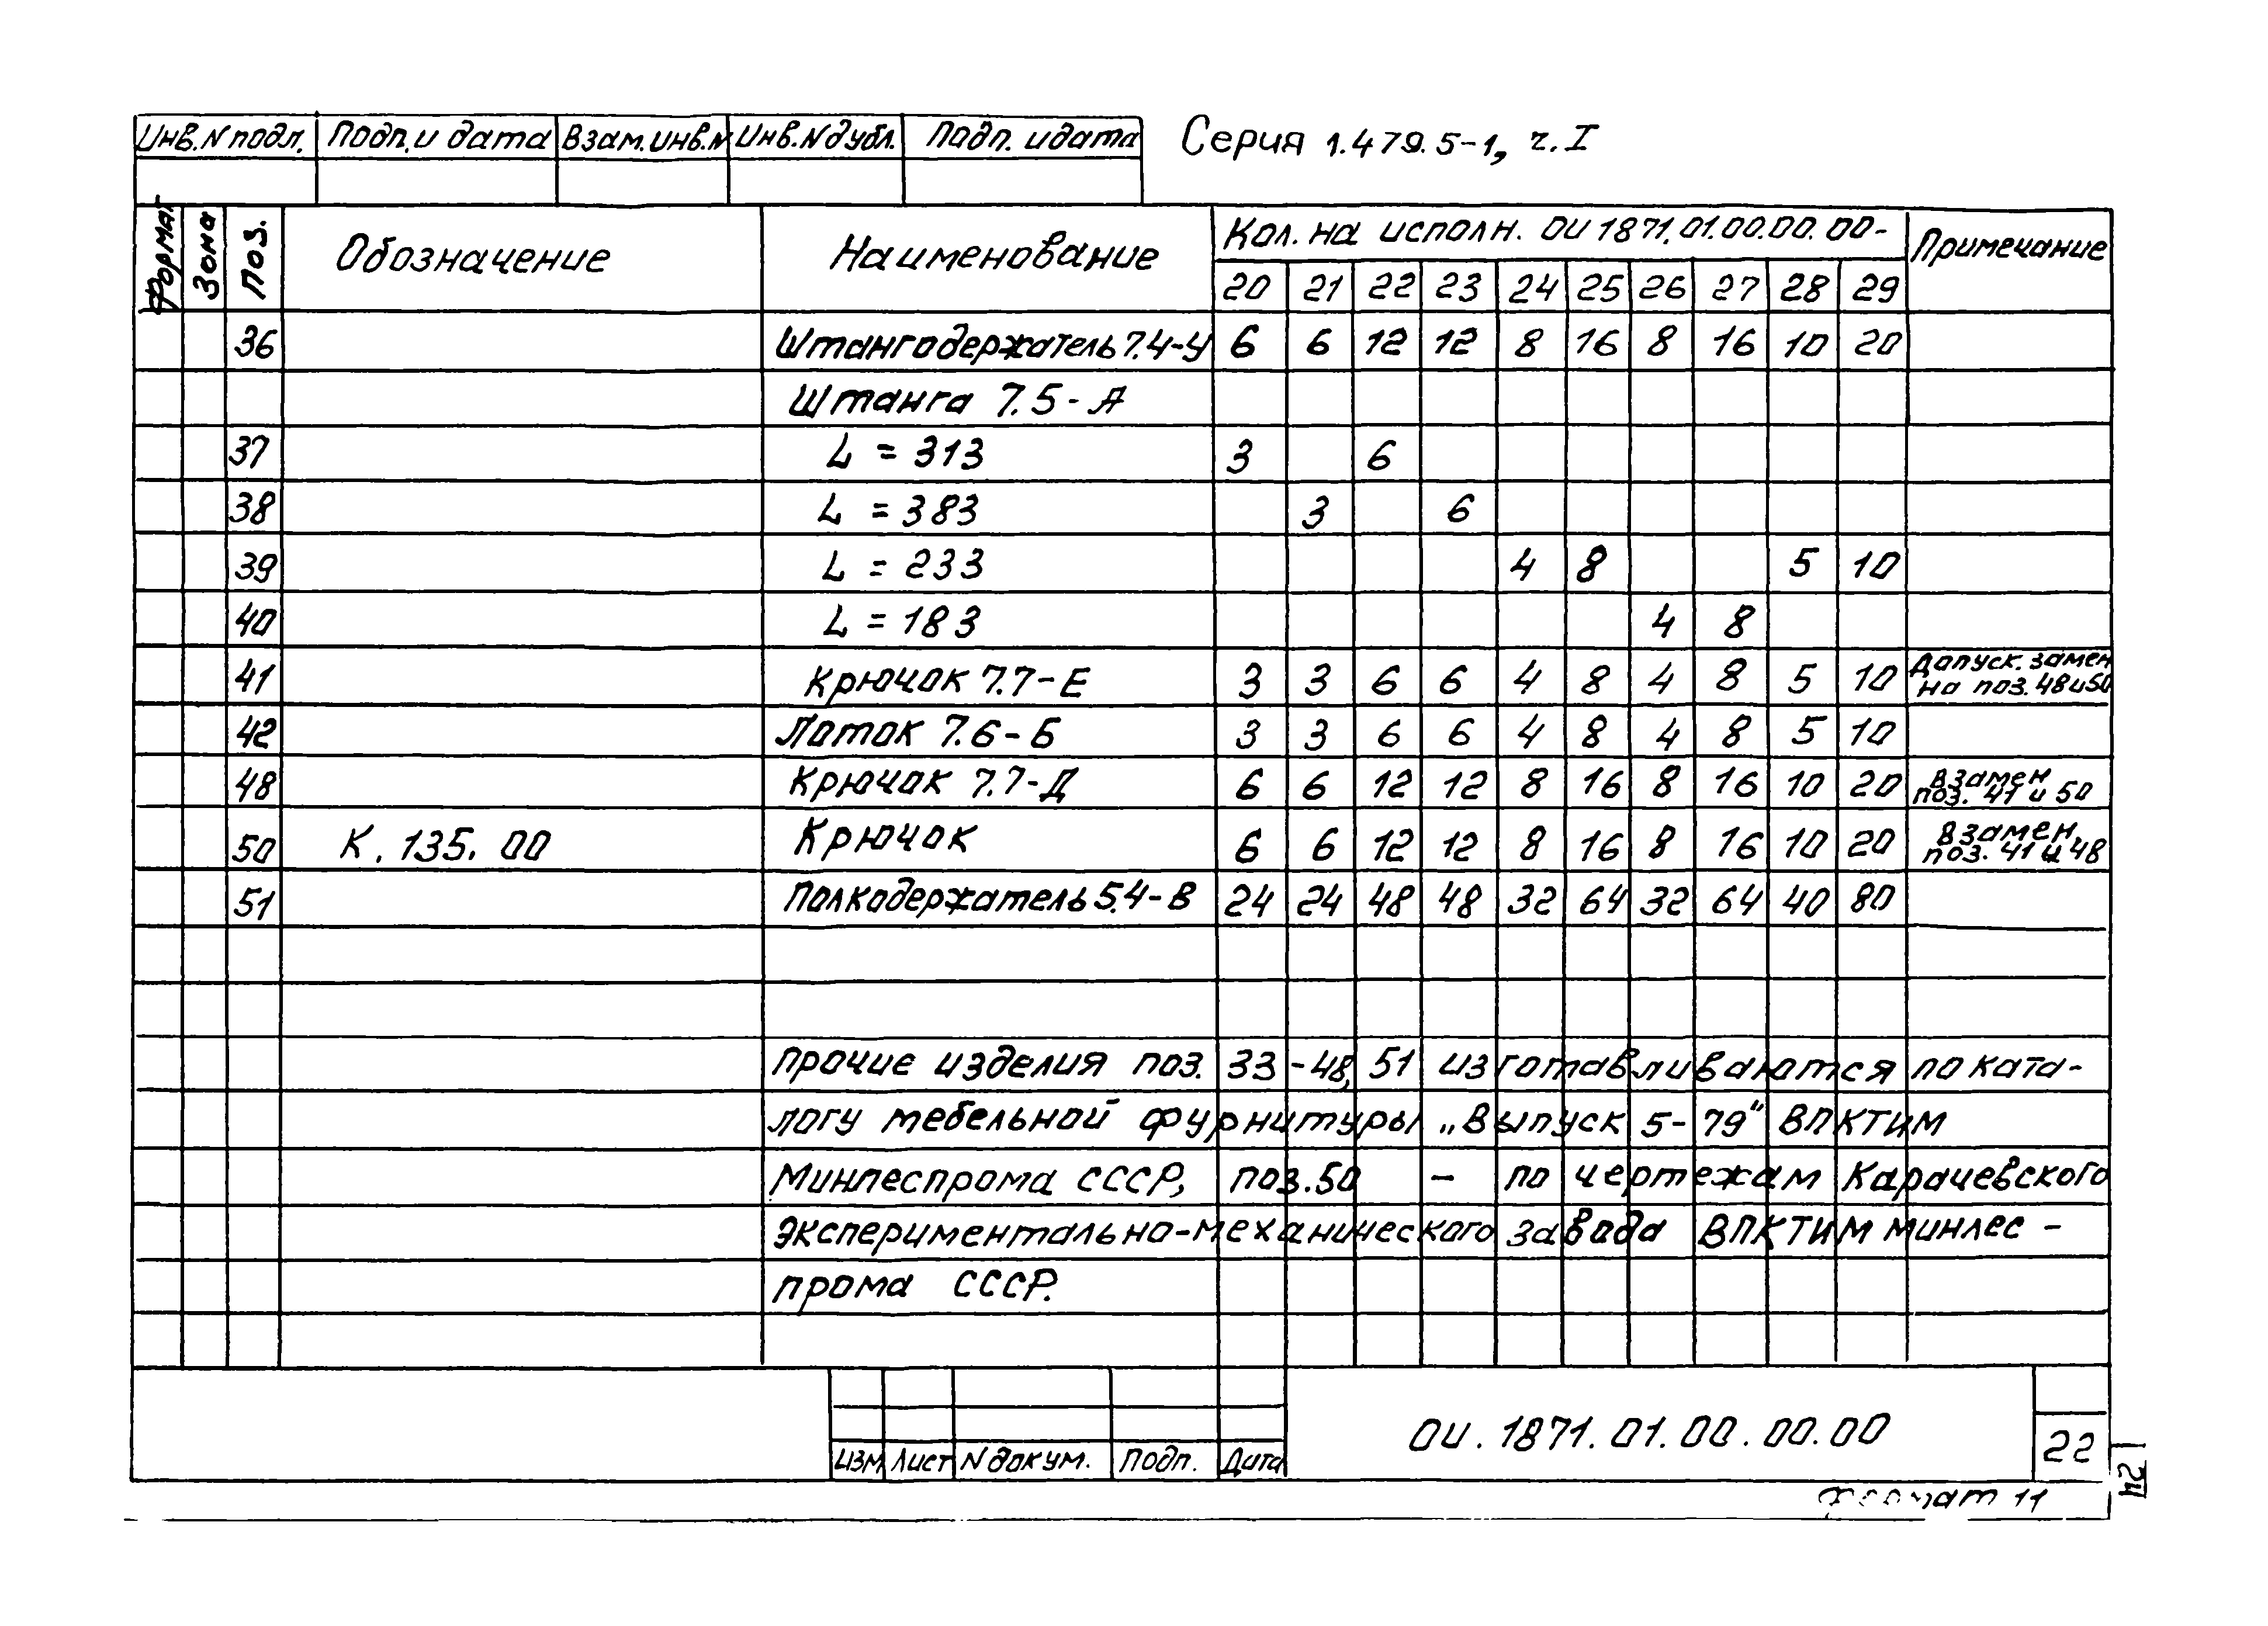 Инв.N подл. Подп. и дата Взам.инв.N Инв.N дубл. Подп. и дата Серия 1.479.5-1, ч.I
Формат Зона Поз. Обозначение Наименование Кол. на исполн. ОИ 1871.01.00.00.00- Примечание
20 21 22 23 24 25 26 27 28 29
36 Штангодержатель 7.4-У 6 6 12 12 8 16 8 16 10 20
Штанга 7.5-А
37 L = 313 3 6
38 L = 383 3 6
39 L = 233 4 8 5 10
40 L = 183 4 8
41 Крючок 7.7-Е 3 3 6 6 4 8 4 8 5 10 Допуск. замен на поз. 48 и 50
42 Лоток 7.6-Б 3 3 6 6 4 8 4 8 5 10
48 Крючок 7.7-Д 6 6 12 12 8 16 8 16 10 20 Взамен поз. 41 и 50
50 К.135.00 Крючок 6 6 12 12 8 16 8 16 10 20 Взамен поз. 41 и 48
51 Полкодержатель 5.4-В 24 24 48 48 32 64 32 64 40 80
Прочие изделия поз. 33-48, 51 изготавливаются по ката-
логу мебельной фурнитуры „Выпуск 5-79" ВПКТИМ
Минлеспрома СССР, поз.50 - по чертежам Карачевского
экспериментально-механического завода ВПКТИМ минлес-
прома СССР.
Изм Лист N докум. Подп. Дата ОИ.1871.01.00.00.00 22
Формат 11
24